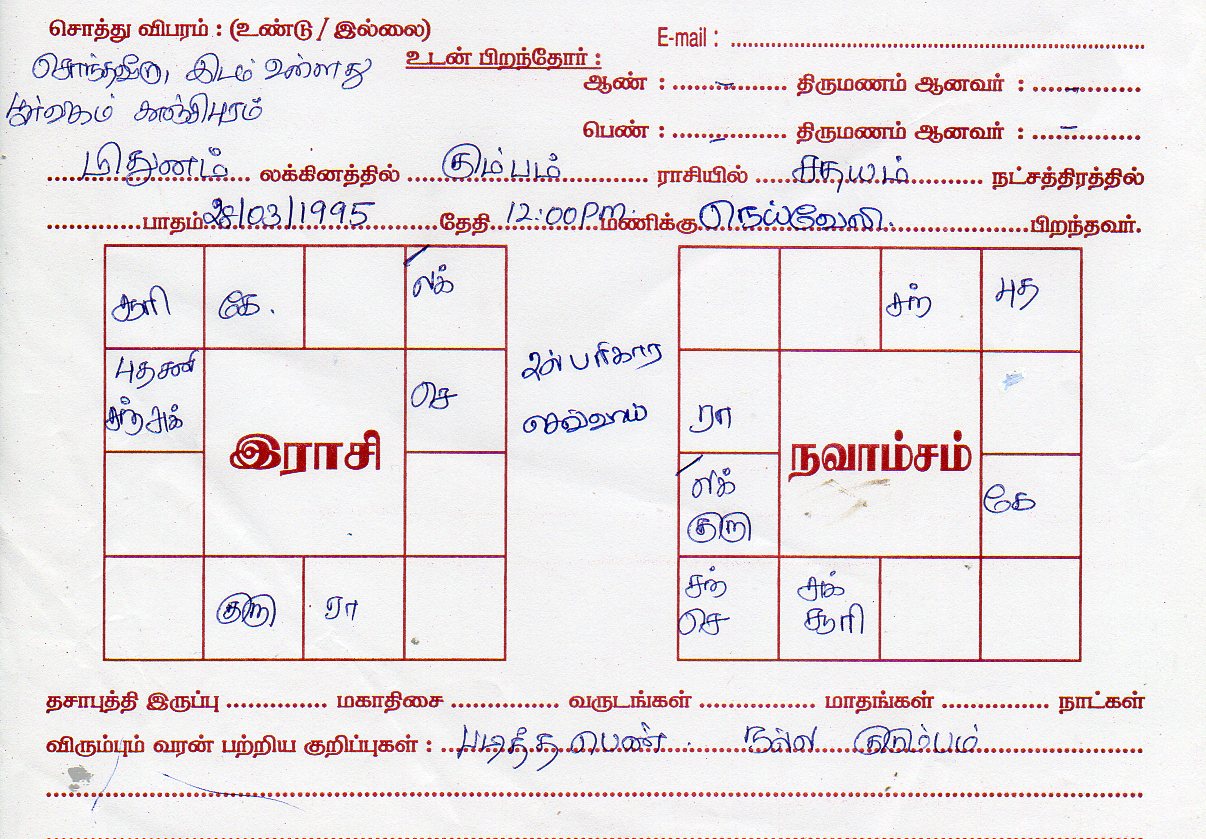 சொத்து விபரம் : (உண்டு / இல்லை)
E-mail : ........................
சொந்தவீடு, இடம் உள்ளது
உடன் பிறந்தோர் :
ஆண் : ....-.... திருமணம் ஆனவர் : ....-....
பூர்வீகம் காஞ்சிபுரம்
பெண் : ....-.... திருமணம் ஆனவர் : ....-....
மிதுனம் லக்கினத்தில் கும்பம் ராசியில் சதயம் நட்சத்திரத்தில்
பாதம் 28/03/1995 தேதி 12:00PM. மணிக்கு நெய்வேலி. பிறந்தவர்.
சூரி கே. லக்
புத சனி
சந் சுக்
செ
இராசி
குரு ரா
பரிகார
செவ்வாய்
புத
ரா
நவாம்சம்
லக்
குரு
கே
செ
சுக்
சூரி
தசாபுத்தி இருப்பு .............. மகாதிசை .............. வருடங்கள் .............. மாதங்கள் .............. நாட்கள்
விரும்பும் வரன் பற்றிய குறிப்புகள் : படித்த பெண். நல்ல குடும்பம்